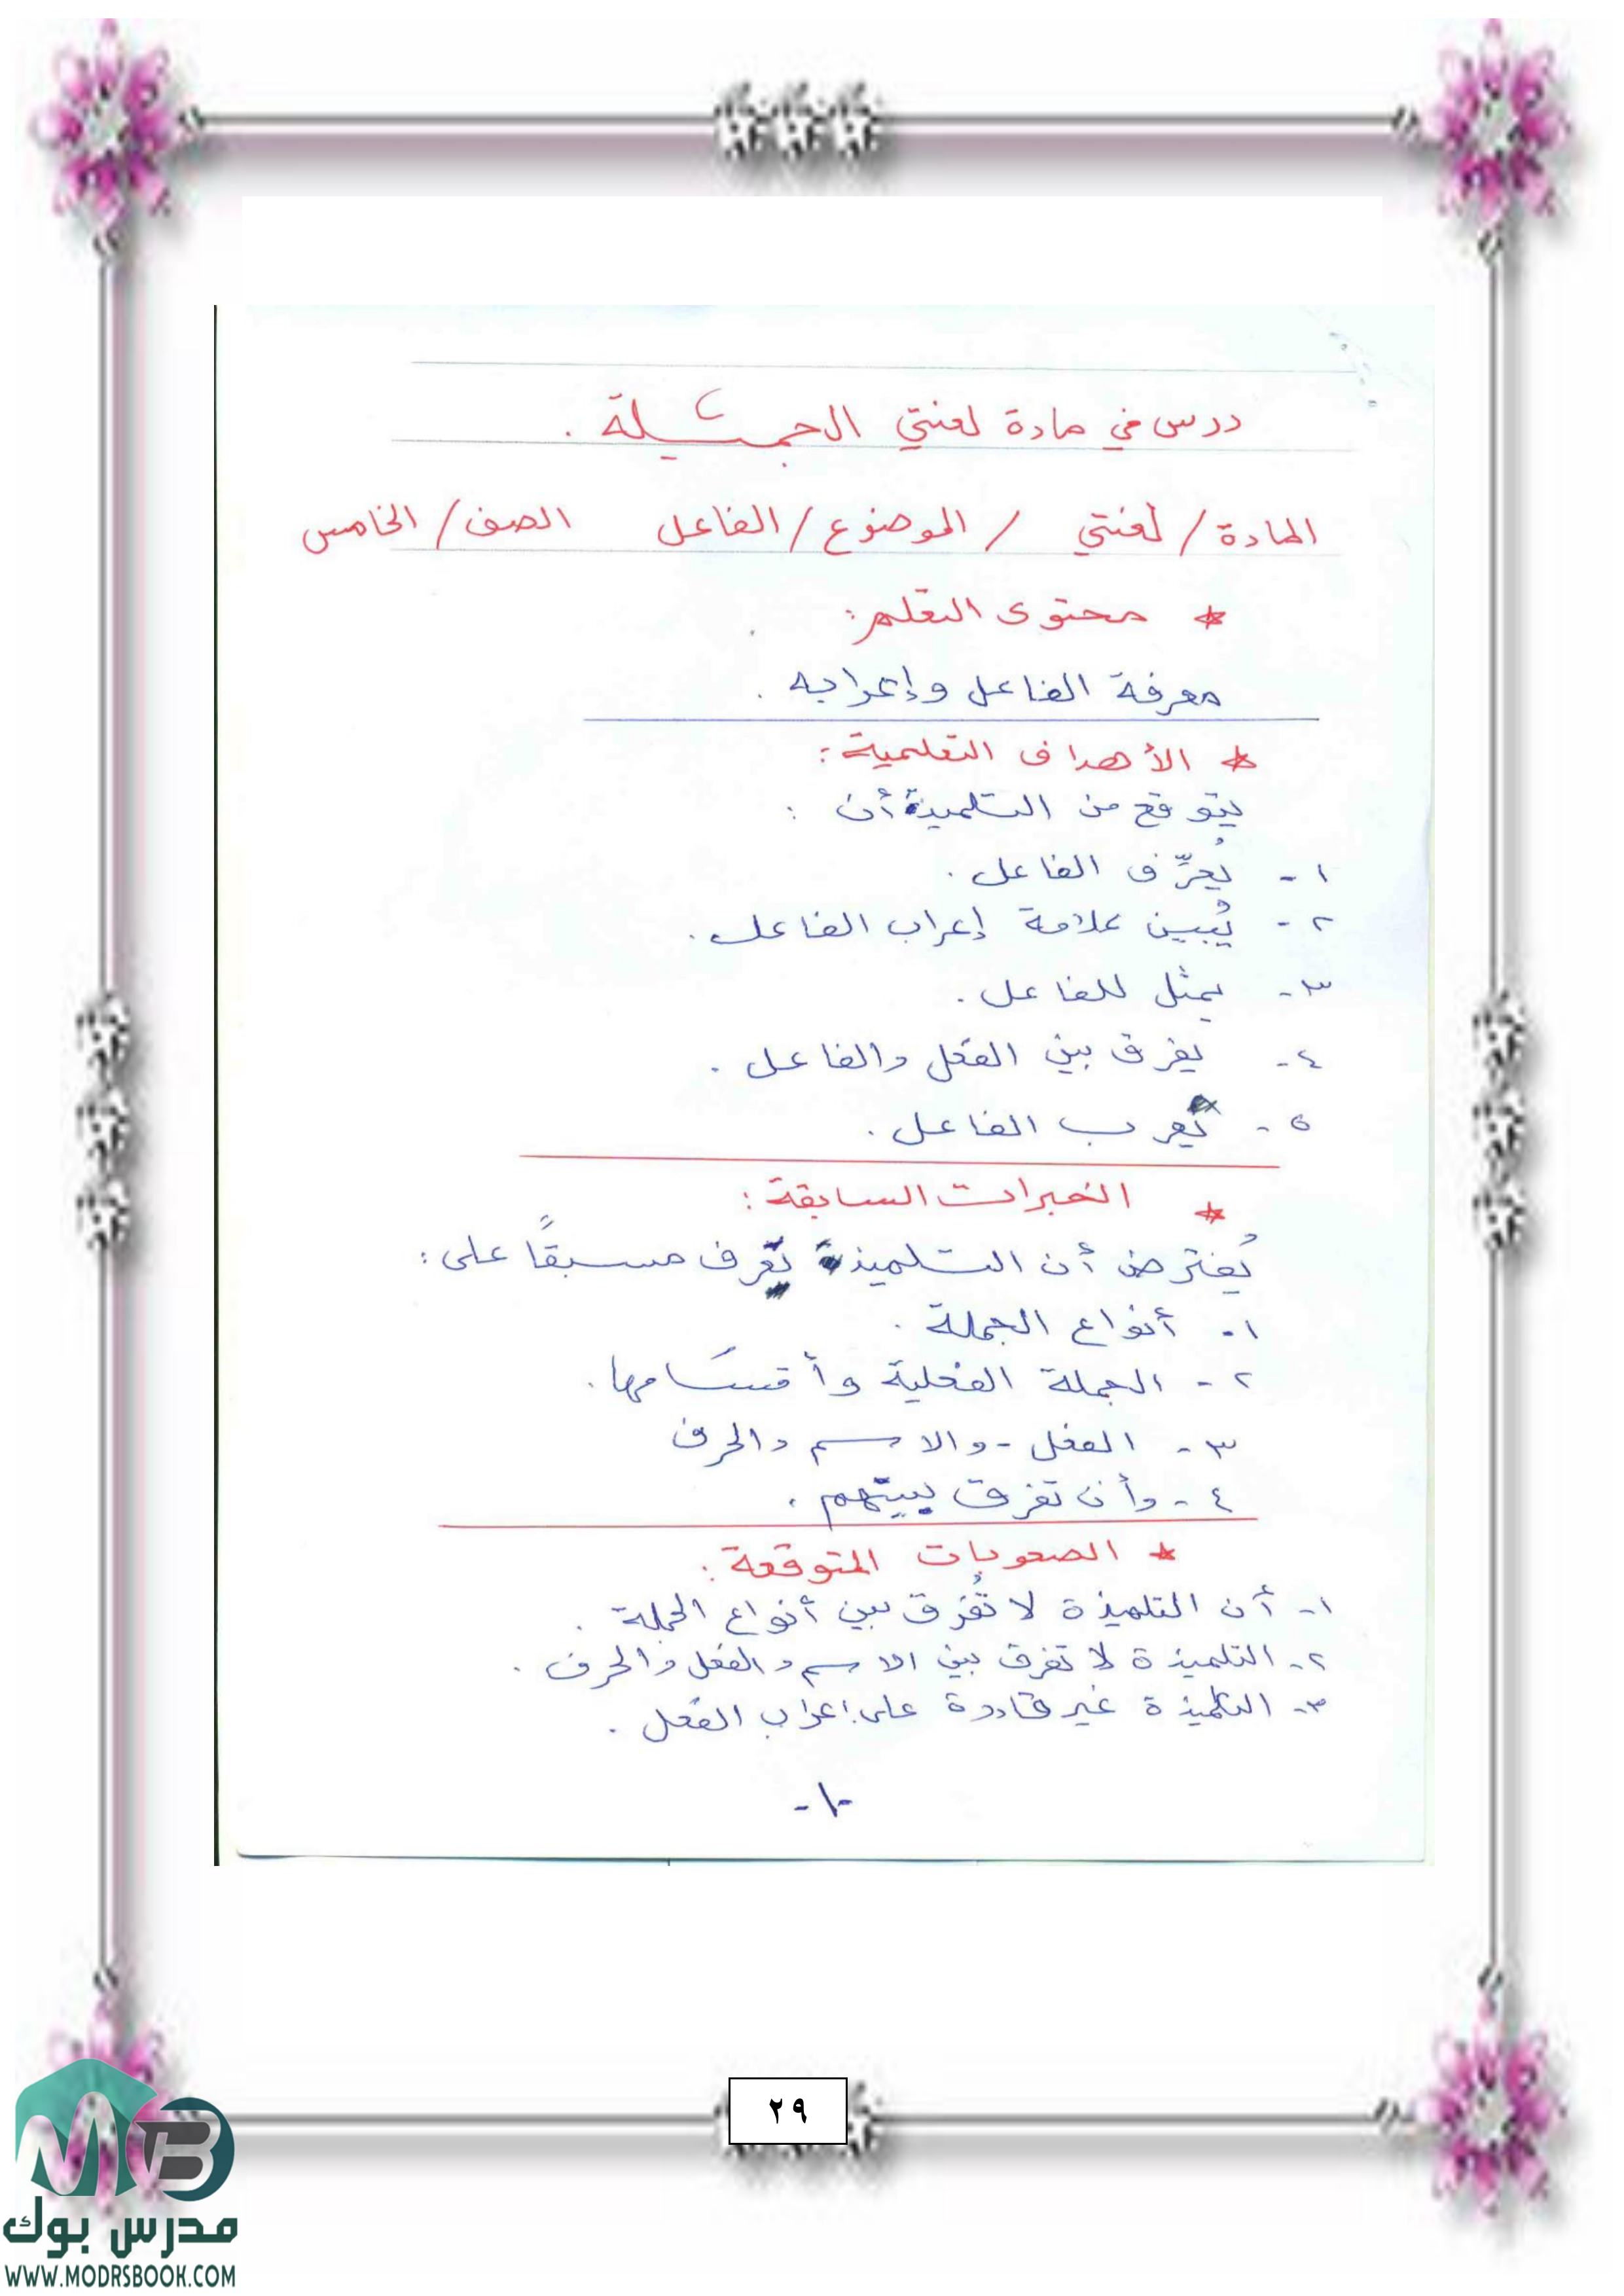 درس في مادة لغتي الجميلة .
المادة / لغتي / الموضوع / الفاعل الصف / الخامس
* محتوى التعلم :
معرفة الفاعل وإعرابه .
* الأهداف التعلمية :
يتوقع من التلميذة أن :
١ - يُعرِّف الفاعل .
٢ - يُبين علامة إعراب الفاعل .
٣ - يمثل للفاعل .
٤ - يفرق بين الفعل والفاعل .
٥ - يعرب الفاعل .
* الخبرات السابقة :
يُفترض أن التلميذة تعرف مسبقًا على :
١ - أنواع الجملة .
٢ - الجملة الفعلية وأقسامها .
٣ - الفعل - والاسم والحرف
٤ - وأن تفرق بينهم .
* الصعوبات المتوقعة :
١ - أن التلميذة لا تُفرق بين أنواع الجملة .
٢ - التلميذة لا تفرق بين الاسم والفعل والحرف .
٣ - التلميذة غير قادرة على إعراب الفعل .
- ١ -
٢٩
MB
مدرس بوك
WWW.MODRSBOOK.COM